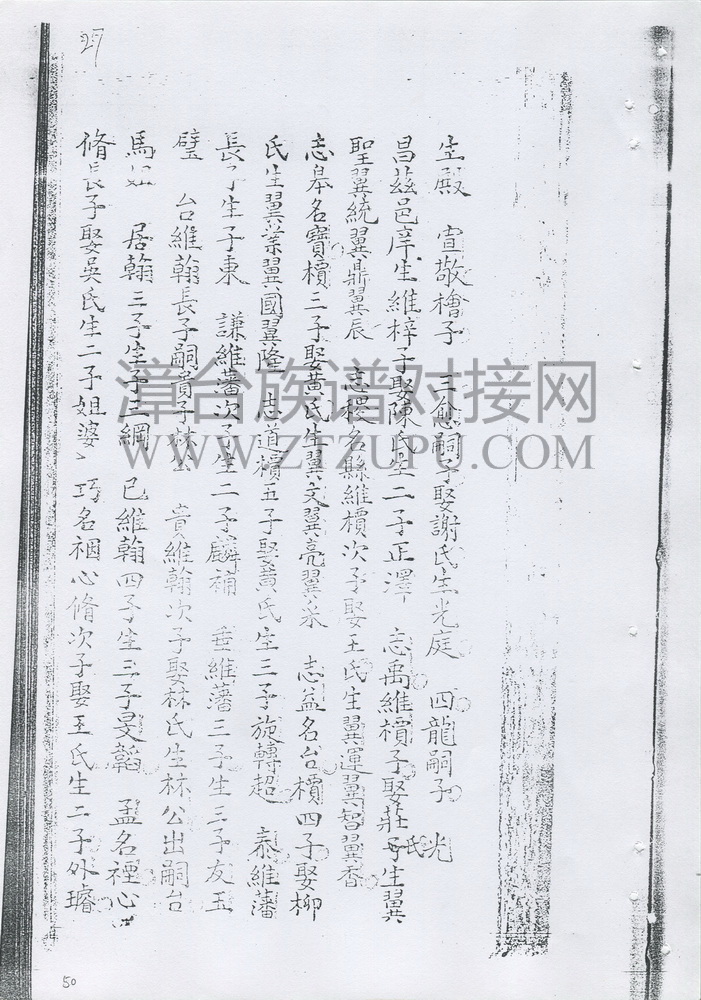 27
生殿 宣敬檜子 三愈嗣子娶謝氏生光庭 四龍嗣子光
昌茲邑庠生維梓子娶陳氏生二子正澤 志禹維櫝子娶莊氏生翼
聖翼統翼鼎翼辰 志稷名縣維櫝次子娶王氏生翼運翼智翼香
志皋名寶櫝三子娶黃氏生翼文翼亮翼采 志益名台櫝四子娶柳
氏生翼業翼國翼隆 志道櫝五子娶黃氏生三子旋轉超 泰維藩
長子生子東 謙維藩次子生二子麟補 垂維藩三子生三子友玉
璧 台維翰長子嗣貴子林公 貴維翰次子娶林氏生林公出嗣台
馬 居翰三子生子三綱 已維翰四子生三子旻韜 孟名禋心
脩長子娶吳氏生二子姐婆 巧名禋心脩次子娶王氏生二子外璿
漳台族谱对接网
WWW.ZTZUPU.COM
50